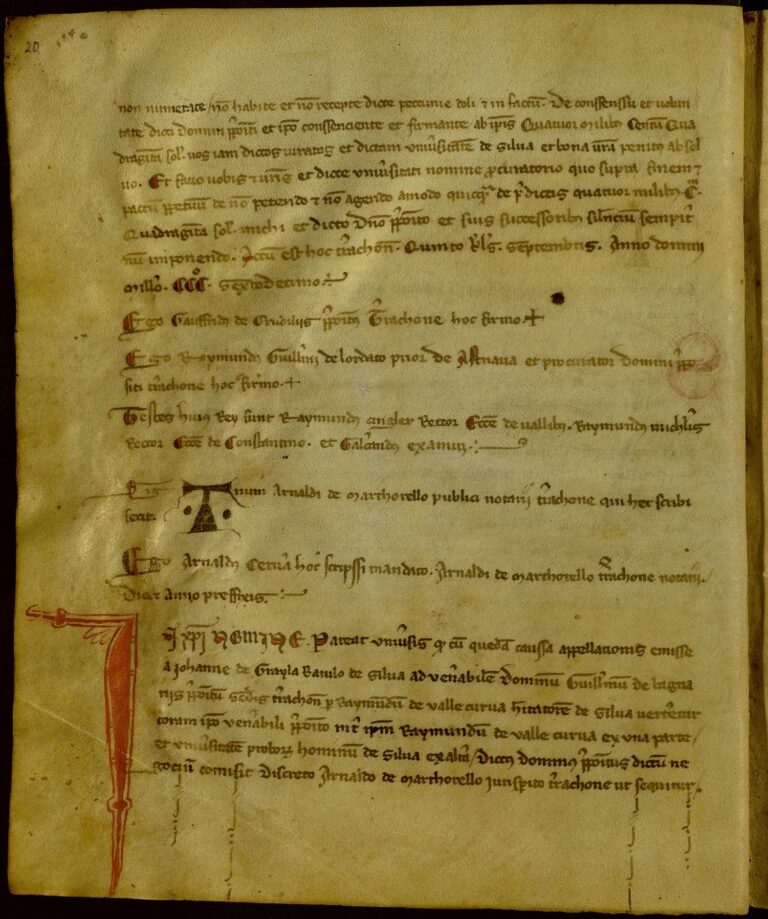 20
non numerate / nõ habite et nõ recepte dicte peccunie doli ⁊ in factũ. De conssenssu et uolun
tate dicti domini p̃poiti et ip̃o conssenciente et firmante ab ip̃is Quatuor milibꝰ Centũ Qua
draginta sol. uos iam dictos iuratos et dictam vniũsitatẽ de silua et bona ũra penitꝰ absol
uo. Et facio uobis ⁊ ũris et dicte vniũsitati nomine procuratorio quo supra finem ⁊
pactũ perpetuũ de nõ petendo ⁊ nõ agendo amodo de p̃dictis quatuor milibꝰ C.
Quadraginta sol. michi et dicto dño p̃poito et suis successoribꝰ silnciũ sempit̃
nũ inponendo. Actũ est hoc tr̃rachoñ. Quinto kl̃s. septembris. Anno domini
mill̃o. CCC̊. sextodecimo.
Ego Gauffridꝰ de Crudiliis p̃poitꝰ Tr̃rachone hoc firmo +
Ego Raymundꝰ Guill̃mi de lordato prior de et procurator domini p̃po
siti tr̃rachone hoc firmo +
Testes huiꝰ Rey sunt Raymundꝰ cingler Rector Ecc̃e de uallibꝰ. Raymundꝰ michl̃is
Rector Ecc̃e de Constantino. et Galc̃andꝰ examus.
Sig num Arnaldi de Marthorello publici notarij tr̃rachone qui hec scribi
fecit.
Ego Arnaldꝰ Ceruia hoc scripssi mandato. Arnaldi de Marthorello tr̃rachone notarij.
Die et Anno preffixis.
In xp̃i nomine. Pateat vniũsis qꝫ cũ quedã caussa appellationis emisse
a Johanne de Grayla Baiulo de silua ad ueñabilem dominũ Guill̃mũ de bagna
riis p̃poitũ sedis tr̃rachoñ p Raymundũ de ualle curua h̃itatorẽ de silua uerteretur
coram ip̃o ueñabili p̃poito int̃ ip̃m Raymundũ de ualle curua ex una parte /
et vniũsitatẽ proborꝫ hominũ de silua ex alt̃a / Dictꝰ dominꝰ p̃poitus dictũ ne
gociũ comisit discreto Arnaldo de Marthorello iurisp̃ito tr̃rachone ut sequitur.